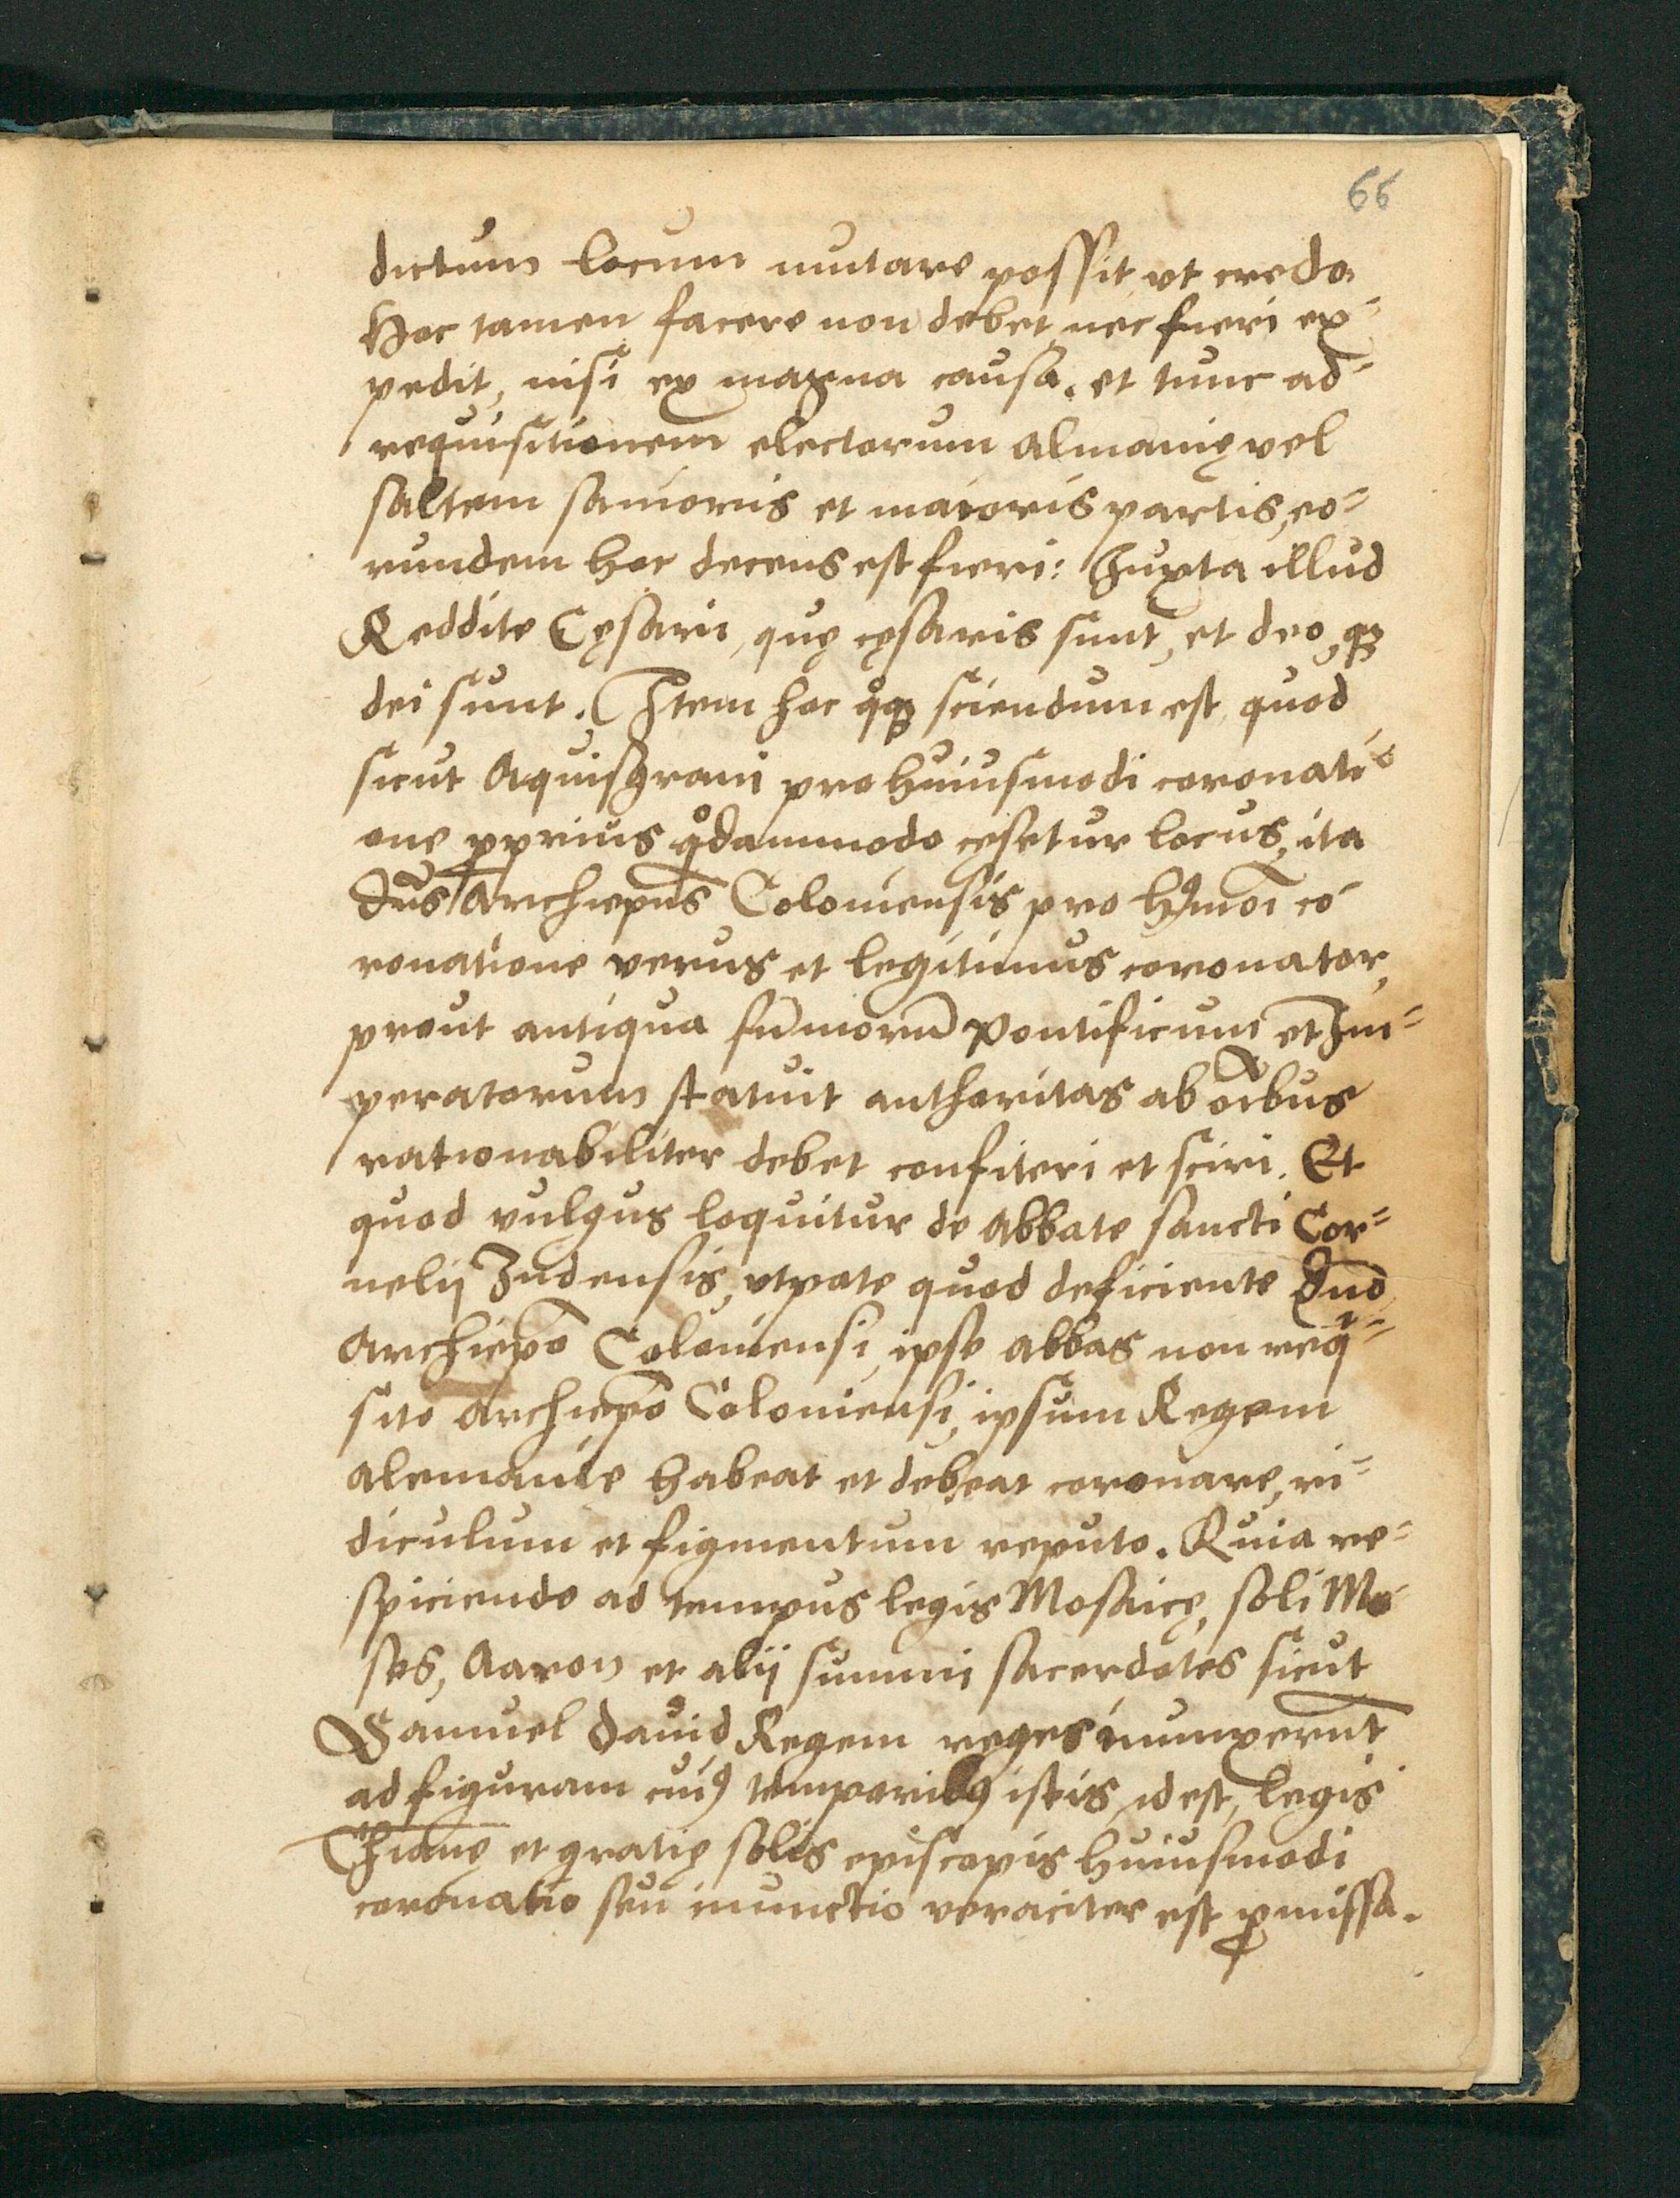 66
dictum locum mutare possit vt credo.
Hoc tamen facere non debet, nec fieri ex¬
pedit, nisi ex magna causa. et tunc ad¬
requisitionem electorum Almanię vel
saltem sanioris et maioris partis, eo¬
rundem hoc decens est fieri: Juxta illud
Reddite Cęsari, quę cęsaris sunt, et deo, quę
dei sunt. Item hoc quoque sciendum est, quod
sicut Aquisgrani pro huiusmodi coronati¬
one pprius qͦdammodo cęsetur locus, ita
dn̄s Archiepūs Coloniensis pro hmōi co¬
ronatione verus et legitimus coronator,
prout antiqua sūmorū Pontificum et Im¬
peratorum statuit authoritas ab oībus
rationabiliter debet confiteri et sciri. Et
quod vulgus loquitur de Abbate sancti Cor¬
nelij Indensis, vtpote quod deficiente dn̄o
Archiepō Coloniensi, ipse abbas non reqi¬
sito Archiepō Coloniensi, ipsum Regem
Alemanie habeat et debeat coronare, ri¬
diculum et figmentum reputo. Quia re¬
spiciendo ad tempus legis Mosaicę, soli Mo¬
ses, Aaron et alij summi sacerdotes sicut
Samuel Dauid Regem reges inunxerūt
ad figuram cui9 temporib9 istis, id est, legis
Chr̄ianę et gratię solis episcopis huiusmodi
coronatio seu inunctio veraciter est pmissa.